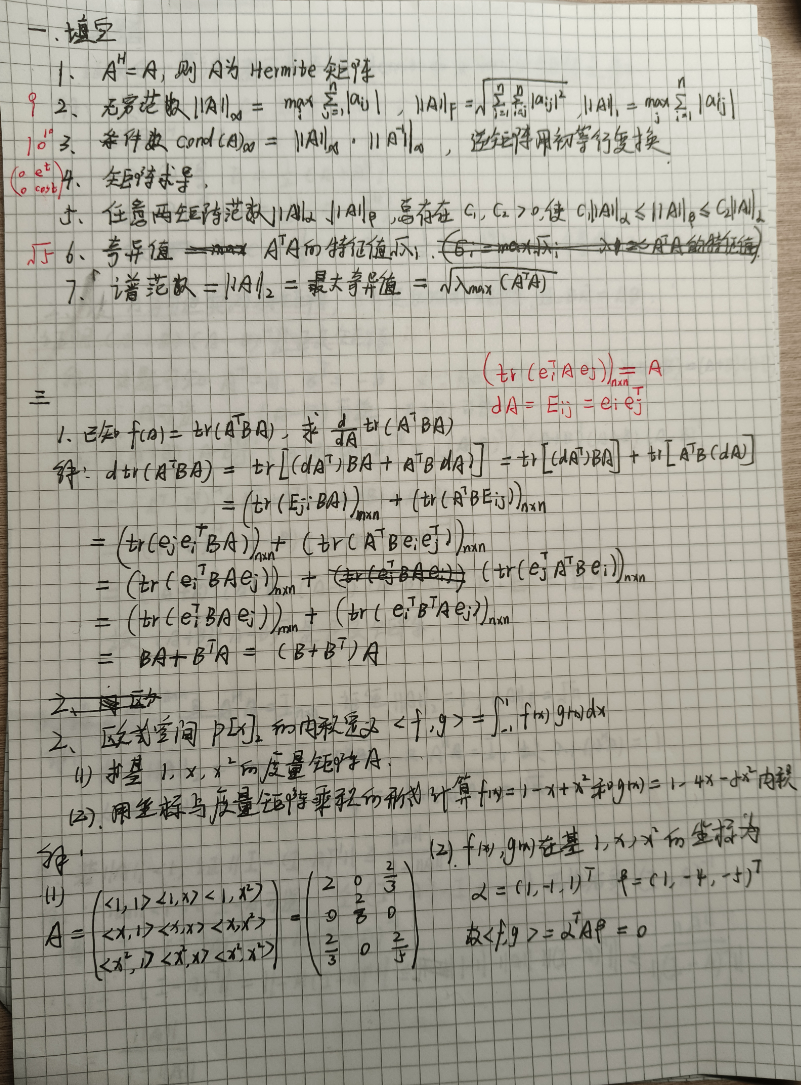 一、填空
1、 A^H = A, 则 A为 Hermite 矩阵
9 2、 无穷范数 ||A||∞ = max_i Σ_{j=1}^n |aij| , ||A||F = √(Σ_{i=1}^n Σ_{j=1}^n |aij|²) , ||A||1 = max_j Σ_{i=1}^n |aij|
10^10 3、 条件数 cond(A)∞ = ||A||∞ · ||A^-1||∞ , 逆矩阵用初等行变换.
(0 e^t; 0 cost) 4、 矩阵求导.
5、 任意两矩阵范数 ||A||α , ||A||β , 总存在 C1, C2 > 0, 使 C1||A||α ≤ ||A||β ≤ C2||A||α
√5 6、 奇异值 A^T A的特征值√λi.
7、 谱范数 = ||A||2 = 最大奇异值 = √λmax(A^T A)
(tr(ei^T A ej))n×n = A
dA = Eij = ei ej^T
三
1、已知 f(A) = tr(A^T BA), 求 d/dA tr(A^T BA)
解: d tr(A^T BA) = tr[(dA^T)BA + A^T B dA)] = tr[(dA^T)BA] + tr[A^T B(dA)]
= (tr(Eji BA))n×n + (tr(A^T B Eij))n×n
= (tr(ej ei^T BA))n×n + (tr(A^T B ei ej^T))n×n
= (tr(ei^T BA ej))n×n + (tr(ej^T A^T B ei))n×n
= (tr(ei^T BA ej))n×n + (tr(ei^T B^T A ej))n×n
= BA + B^T A = (B + B^T) A
2、 欧式空间 P[x]2 的内积定义 <f, g> = ∫_{-1}^{1} f(x) g(x) dx
(1) 求基 1, x, x² 的度量矩阵A.
(2). 用坐标与度量矩阵乘积的形式计算f(x) = 1-x+x² 和 g(x) = 1-4x-5x² 内积
解:
(1)
A = (<1, 1> <1, x> <1, x²>; <x, 1> <x, x> <x, x²>; <x², 1> <x², x> <x², x²>) = (2 0 2/3; 0 2/3 0; 2/3 0 2/5)
(2). f(x), g(x)在基 1, x, x² 的坐标为
α = (1, -1, 1)^T β = (1, -4, -5)^T
故<f, g> = α^T A β = 0